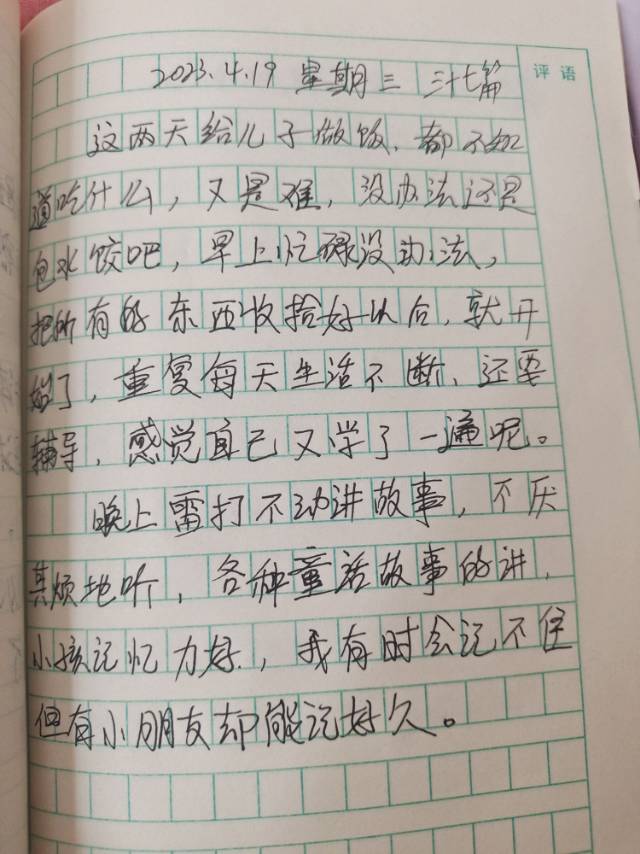 评语
2023.4.19 星期三 三十七篇
这两天给儿子做饭，都不知
道吃什么，又是难，没办法还是
包水饺吧，早上忙碌没办法，
把所有的东西收拾好以后，就开
始了，重复每天生活不断，还要
辅导，感觉自己又学了一遍呢。
晚上雷打不动讲故事，不厌
其烦地听，各种童话故事的讲，
小孩记忆力好，我有时会记不住
但有小朋友却能记好久。